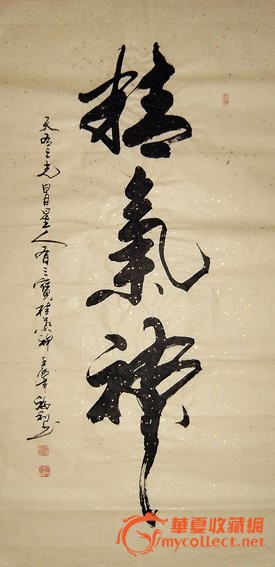 精氣神
天有三光日月星人有三寶精氣神
華夏收藏網
mycollect.net